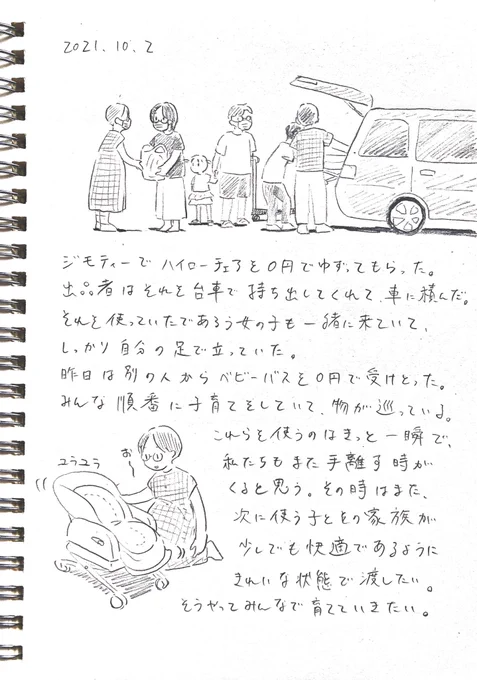 2021.10.2
ジモティーでハイローチェアを0円でゆずってもらった。
出品者はそれを台車で持ち出してくれて、車に積んだ。
それを使っていたであろう女の子も一緒に来ていて、
しっかり自分の足で立っていた。
昨日は別の人からベビーバスを0円で受けとった。
みんな順番に子育てをしていて、物が巡っている。
これらを使うのはきっと一瞬で、
私たちもまた手離す時が
くると思う。その時はまた、
次に使う子とその家族が
少しでも快適であるように
きれいな状態で渡したい。
そうやってみんなで育てていきたい。
ユラユラ
お〜